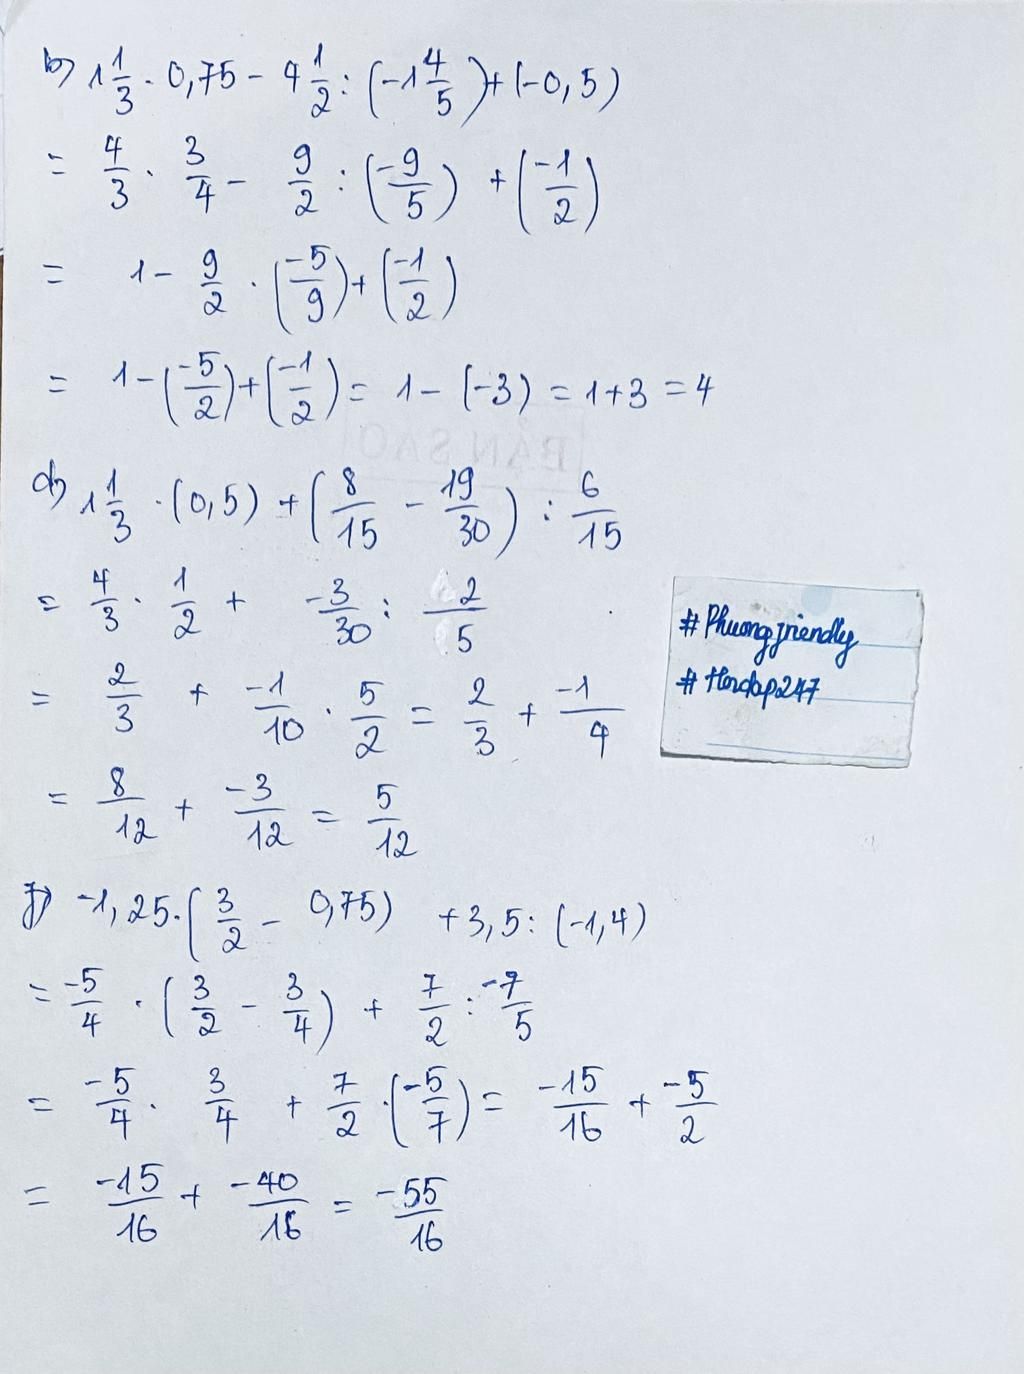 b) 1 1/3 . 0,75 - 4 1/2 : (-1 4/5) + (-0,5)
= 4/3 . 3/4 - 9/2 : (-9/5) + (-1/2)
= 1 - 9/2 . (-5/9) + (-1/2)
= 1 - (-5/2) + (-1/2) = 1 - (-3) = 1 + 3 = 4
BẢN SAO
d) 1 1/3 . (0,5) + (8/15 - 19/30) : 6/15
= 4/3 . 1/2 + -3/30 : 2/5
= 2/3 + -1/10 . 5/2 = 2/3 + -1/4
= 8/12 + -3/12 = 5/12
#Phuongfriendly
#Hoidap247
f) -1,25 . (3/2 - 0,75) + 3,5 : (-1,4)
= -5/4 . (3/2 - 3/4) + 7/2 : -7/5
= -5/4 . 3/4 + 7/2 . (-5/7) = -15/16 + -5/2
= -15/16 + -40/16 = -55/16